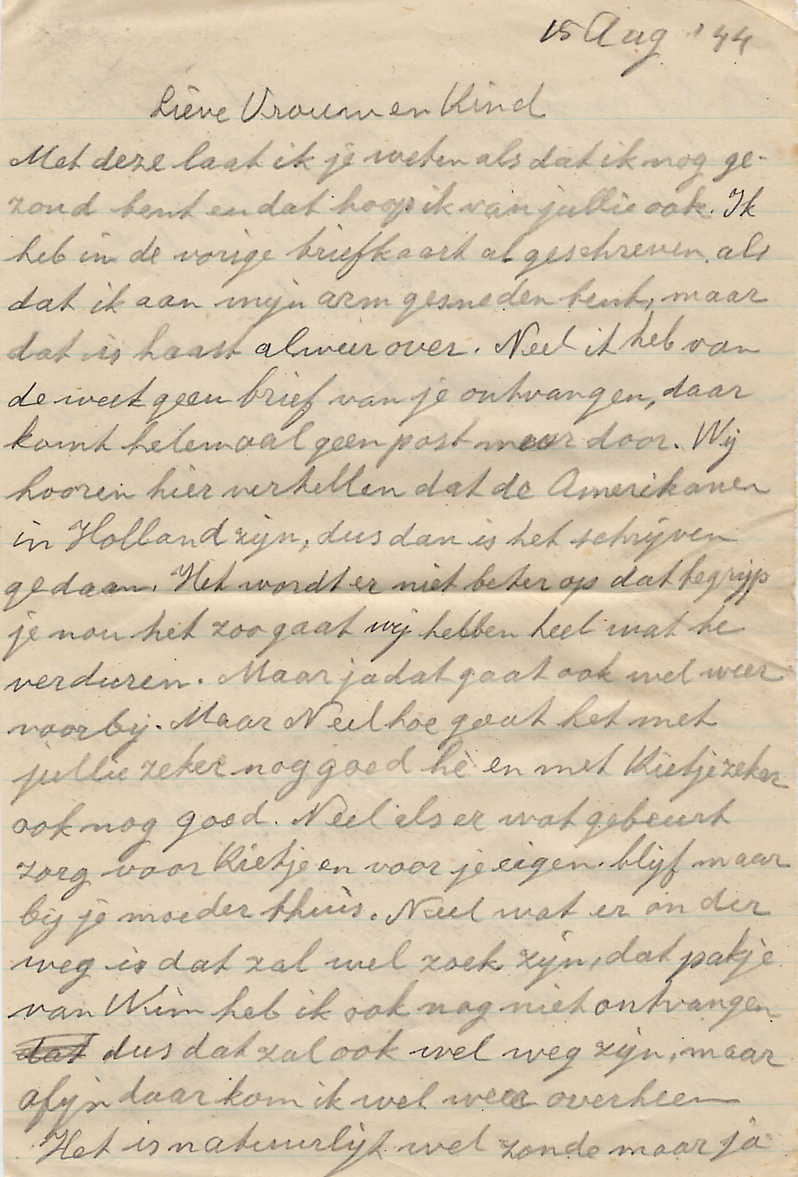 15 Aug '44
Lieve Vrouw en Kind
Met deze laat ik je weten als dat ik nog ge-
zond bent en dat hoop ik van jullie ook. Ik
heb in de vorige briefkaart al geschreven als
dat ik aan mijn arm gesneden bent, maar
dat is haast alweer over. Neel ik heb van
de week geen brief van je ontvangen, daar
komt helemaal geen post meer door. Wij
hooren hier vertellen dat de Amerikanen
in Holland zijn, dus dan is het schrijven
gedaan. Het wordt er niet beter op dat begrijp
je nou het zoo gaat wij hebben heel wat te
verduren. Maar ja dat gaat ook wel weer
voorbij. Maar Neel hoe gaat het met
jullie zeker nog goed hè en met Rietje zeker
ook nog goed. Neel als er wat gebeurt
zorg voor Rietje en voor je eigen. blijf maar
bij je moeder thuis. Neel wat er onder
weg is dat zal wel zoek zijn, dat pakje
van Wim heb ik ook nog niet ontvangen
dat dus dat zal ook wel weg zijn, maar
afijn daar kom ik wel weer overheen
Het is natuurlijk wel zonde maar ja